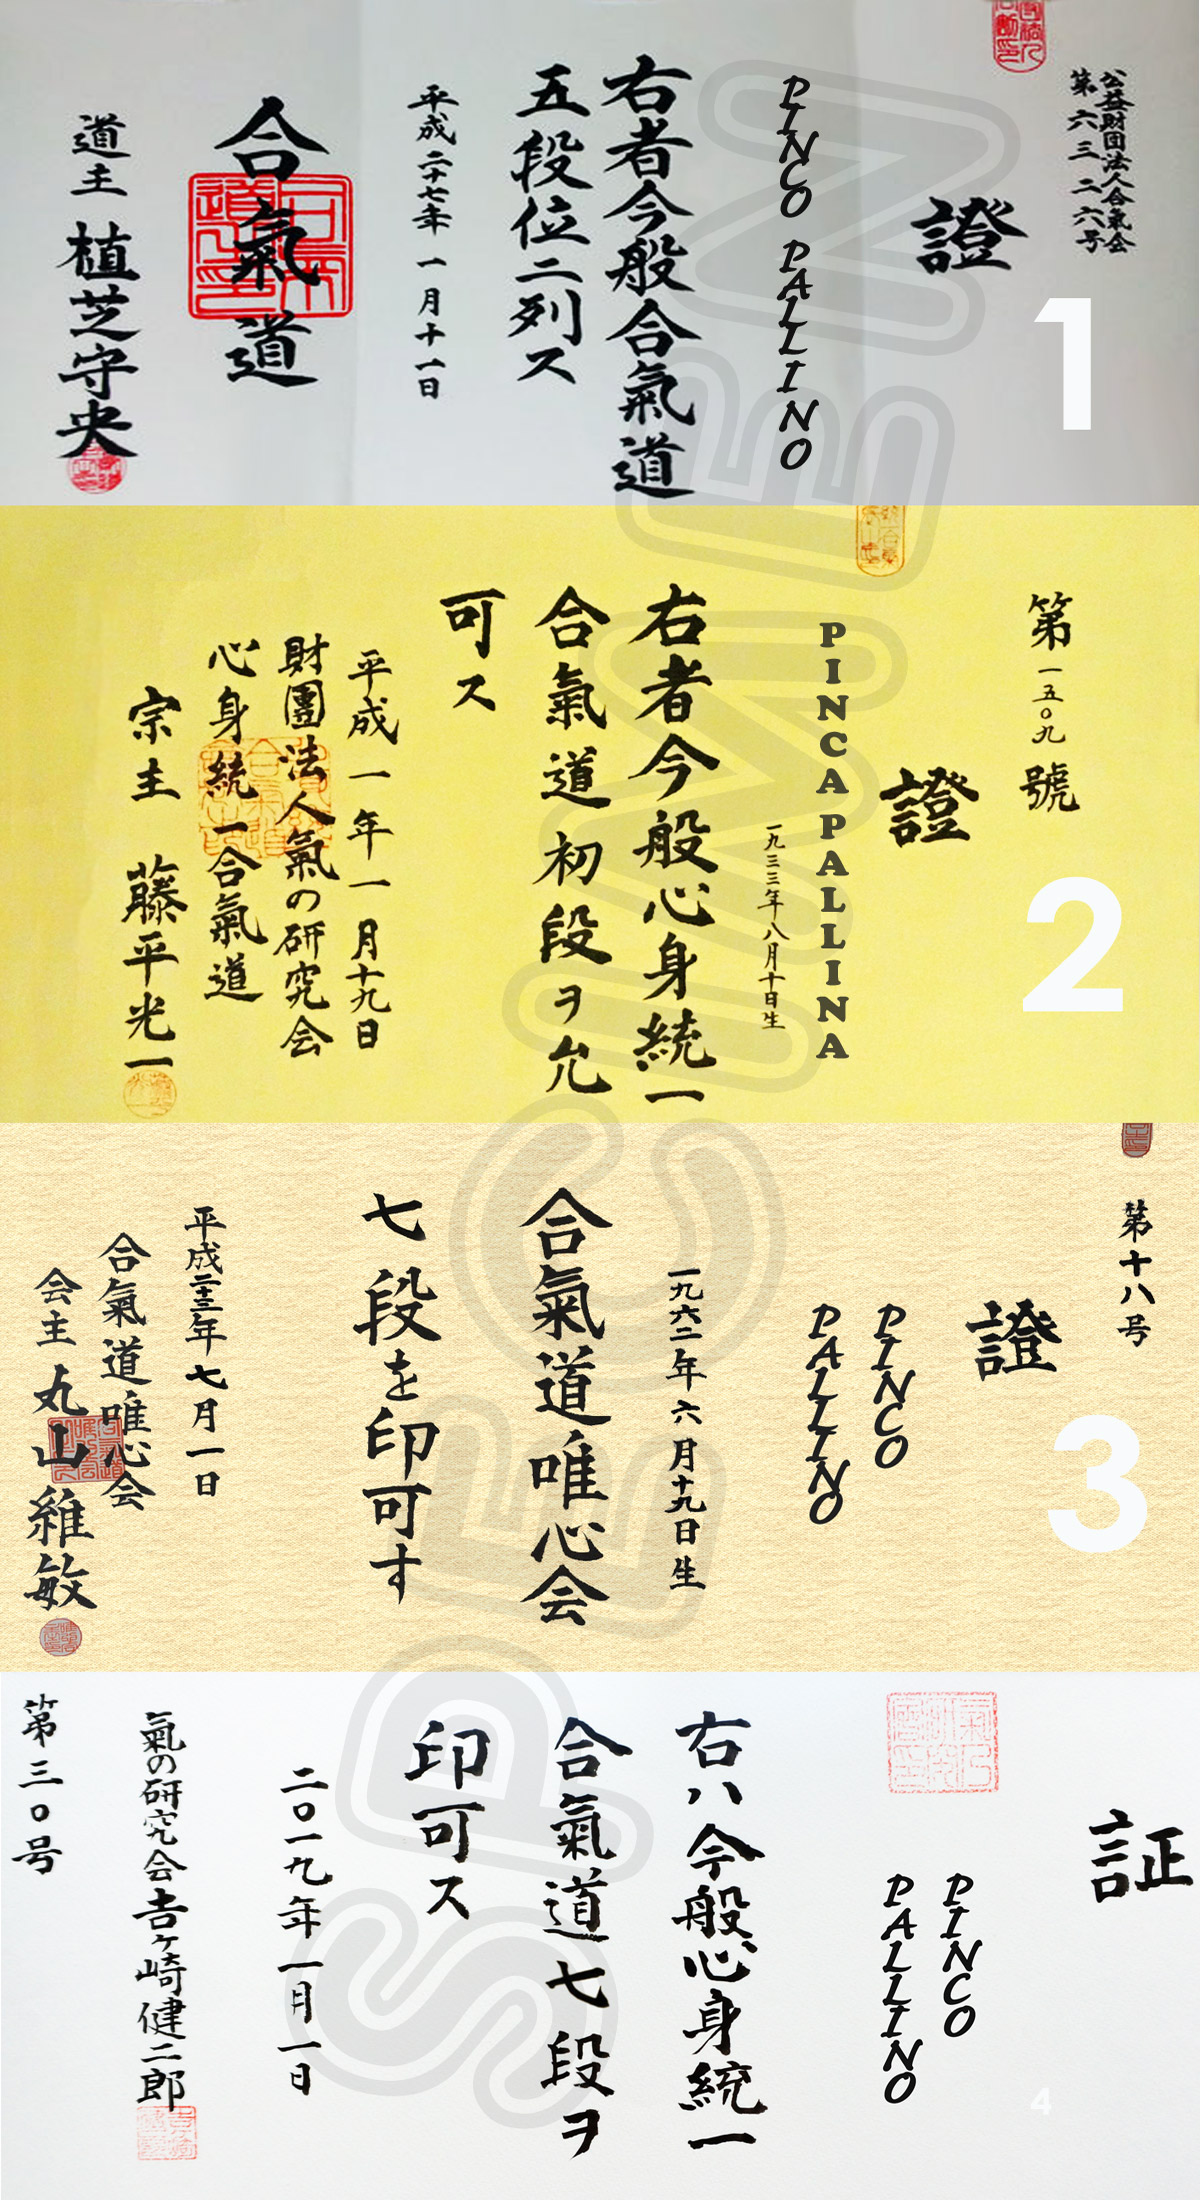 公益財団法人合氣会
第六三二六号
證
PINCO PALLINO
右者今般合氣道
五段位ニ列ス
平成二十七年一月十一日
合氣道
道主 植芝守央
1
第一五〇九號
證
PINCA PALLINA
一九三三年八月十日生
右者今般心身統一
合氣道初段ヲ允
可ス
平成一年一一月十九日
財團法人氣の研究会
心身統一合氣道
宗主 藤平光一
2
第十八号
證
PINCO
PALLINO
一九六二年六月十九日生
合氣道唯心会
七段を印可す
平成二十三年七月一日
合氣道唯心会
会主 丸山維敏
3
証
PINCO
PALLINO
右ハ今般心身統一
合氣道七段ヲ
印可ス
二〇一九年一月一日
氣の研究会吉ヶ崎健二郎
第三〇号
4
SPECIMEN